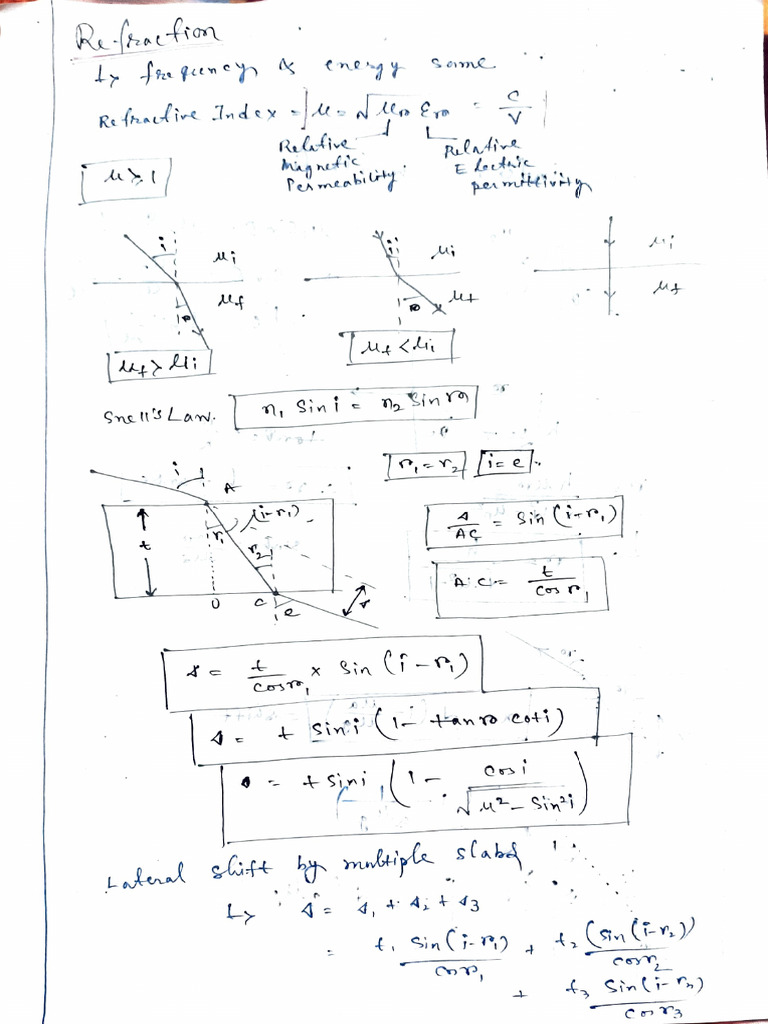 Refraction
↳ frequency & energy same
Refractive Index = μ = √μr εr = c/v
Relative Magnetic Permeability.
Relative Electric permittivity
μ ≥ 1
i μi μf r
i μi μf r
μi μf
μf > μi
μf < μi
Snell's Law. n₁ sin i = n₂ sin r
r₁ = r₂ i = e
i A (i-r₁) r₁ r₂ t O C e
s/AC = sin (i-r₁)
AC = t/cos r₁
s = t/cos r₁ × sin (i-r₁)
s = t sin i (1 - tan r cot i)
s = t sin i (1 - cos i/√μ² - sin² i)
Lateral shift by multiple slabs
↳ s = s₁ + s₂ + s₃
= t₁ sin (i-r₁)/cos r₁ + t₂ (sin (i-r₂))/cos r₂
+ t₃ sin (i-r₃)/cos r₃